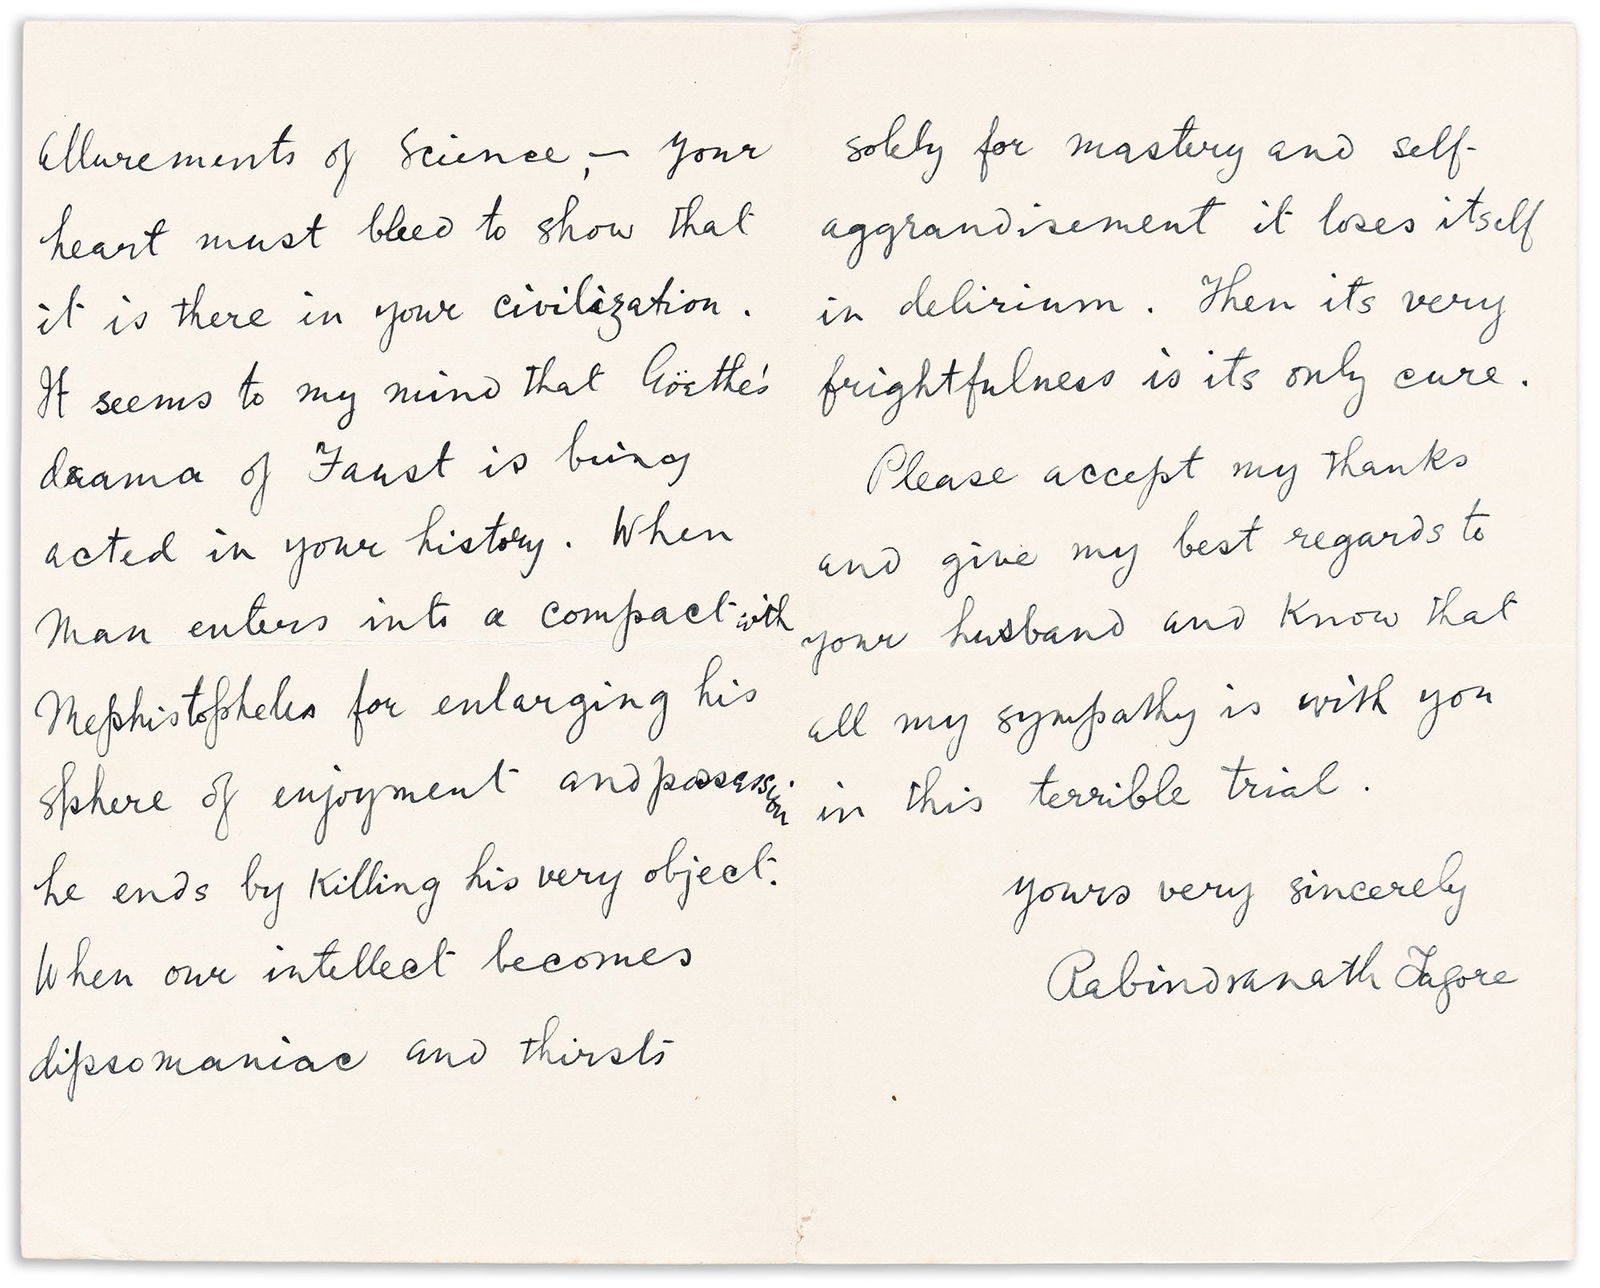 allurements of Science, — your
heart must bleed to show that
it is there in your civilization.
It seems to my mind that Göethe's
drama of Faust is being
acted in your history. When
Man enters into a compact with
Mephistopheles for enlarging his
sphere of enjoyment and possession
he ends by killing his very object.
When our intellect becomes
dipsomaniac and thirsts
solely for mastery and self-
aggrandisement it loses itself
in delirium. Then its very
frightfulness is its only cure.
Please accept my thanks
and give my best regards to
your husband and know that
all my sympathy is with you
in this terrible trial.
yours very sincerely
Rabindranath Tagore